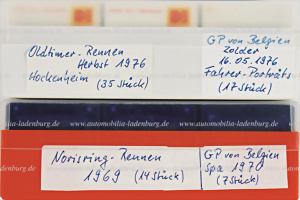 Oldtimer-Rennen
Herbst 1976
Hockenheim (35 Stück)
GP von Belgien
Zolder
16.05.1976
Fahrer-Porträts
(17 Stück)
www.automobilia-ladenburg.de
www.automobilia-ladenburg.de
www.automobilia-ladenburg.de
Norisring-Rennen
1969 (14 Stück)
GP von Belgien
Spa 1970
(7 Stück)